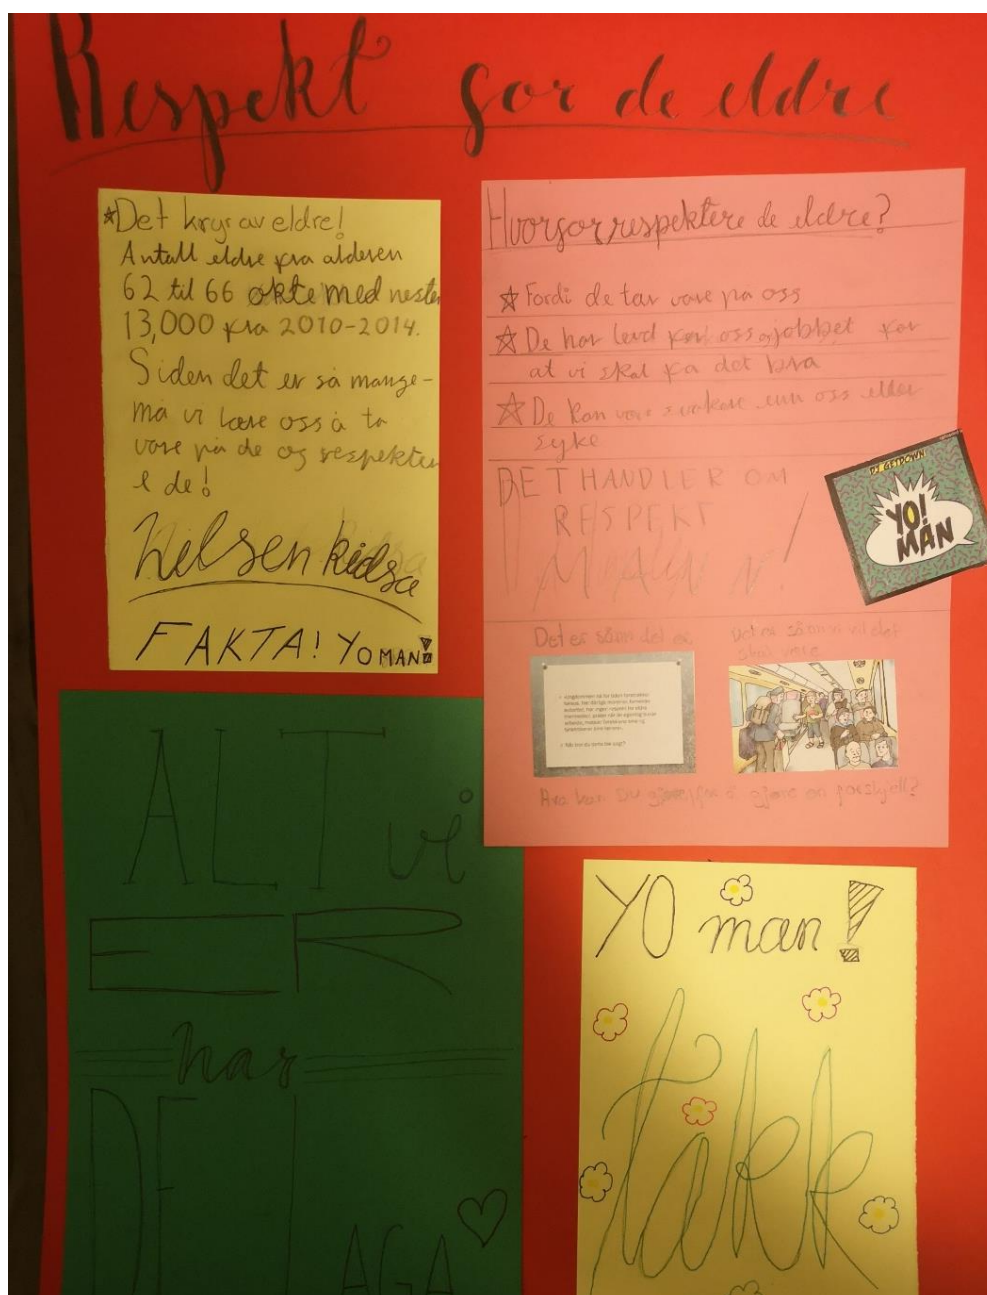 Respekt for de eldre
*Det kryr av eldre!
Antall eldre fra alderen
62 til 66 økte med nesten
13,000 fra 2010-2014.
Siden det er så mange-
må vi lære oss å ta
vare på de og respekter
e de!
Hilsen kidsa
FAKTA! YO MAN!
Hvorfor respektere de eldre?
☆ Fordi de tar vare på oss
☆ De har levd før oss og jobbet for
at vi skal få det bra
☆ De kan være svakere enn oss eller
syke
DET HANDLER OM
RESPEKT
MAAN N!
DJ GETDOWN
YO!
MAN
Det er sånn det er.
Det er sånn vi vil det
skal være
Hva kan du gjøre for å gjøre en forskjell?
ALT vi
ER
har
DE
LAGA ♡
YO man!
takk